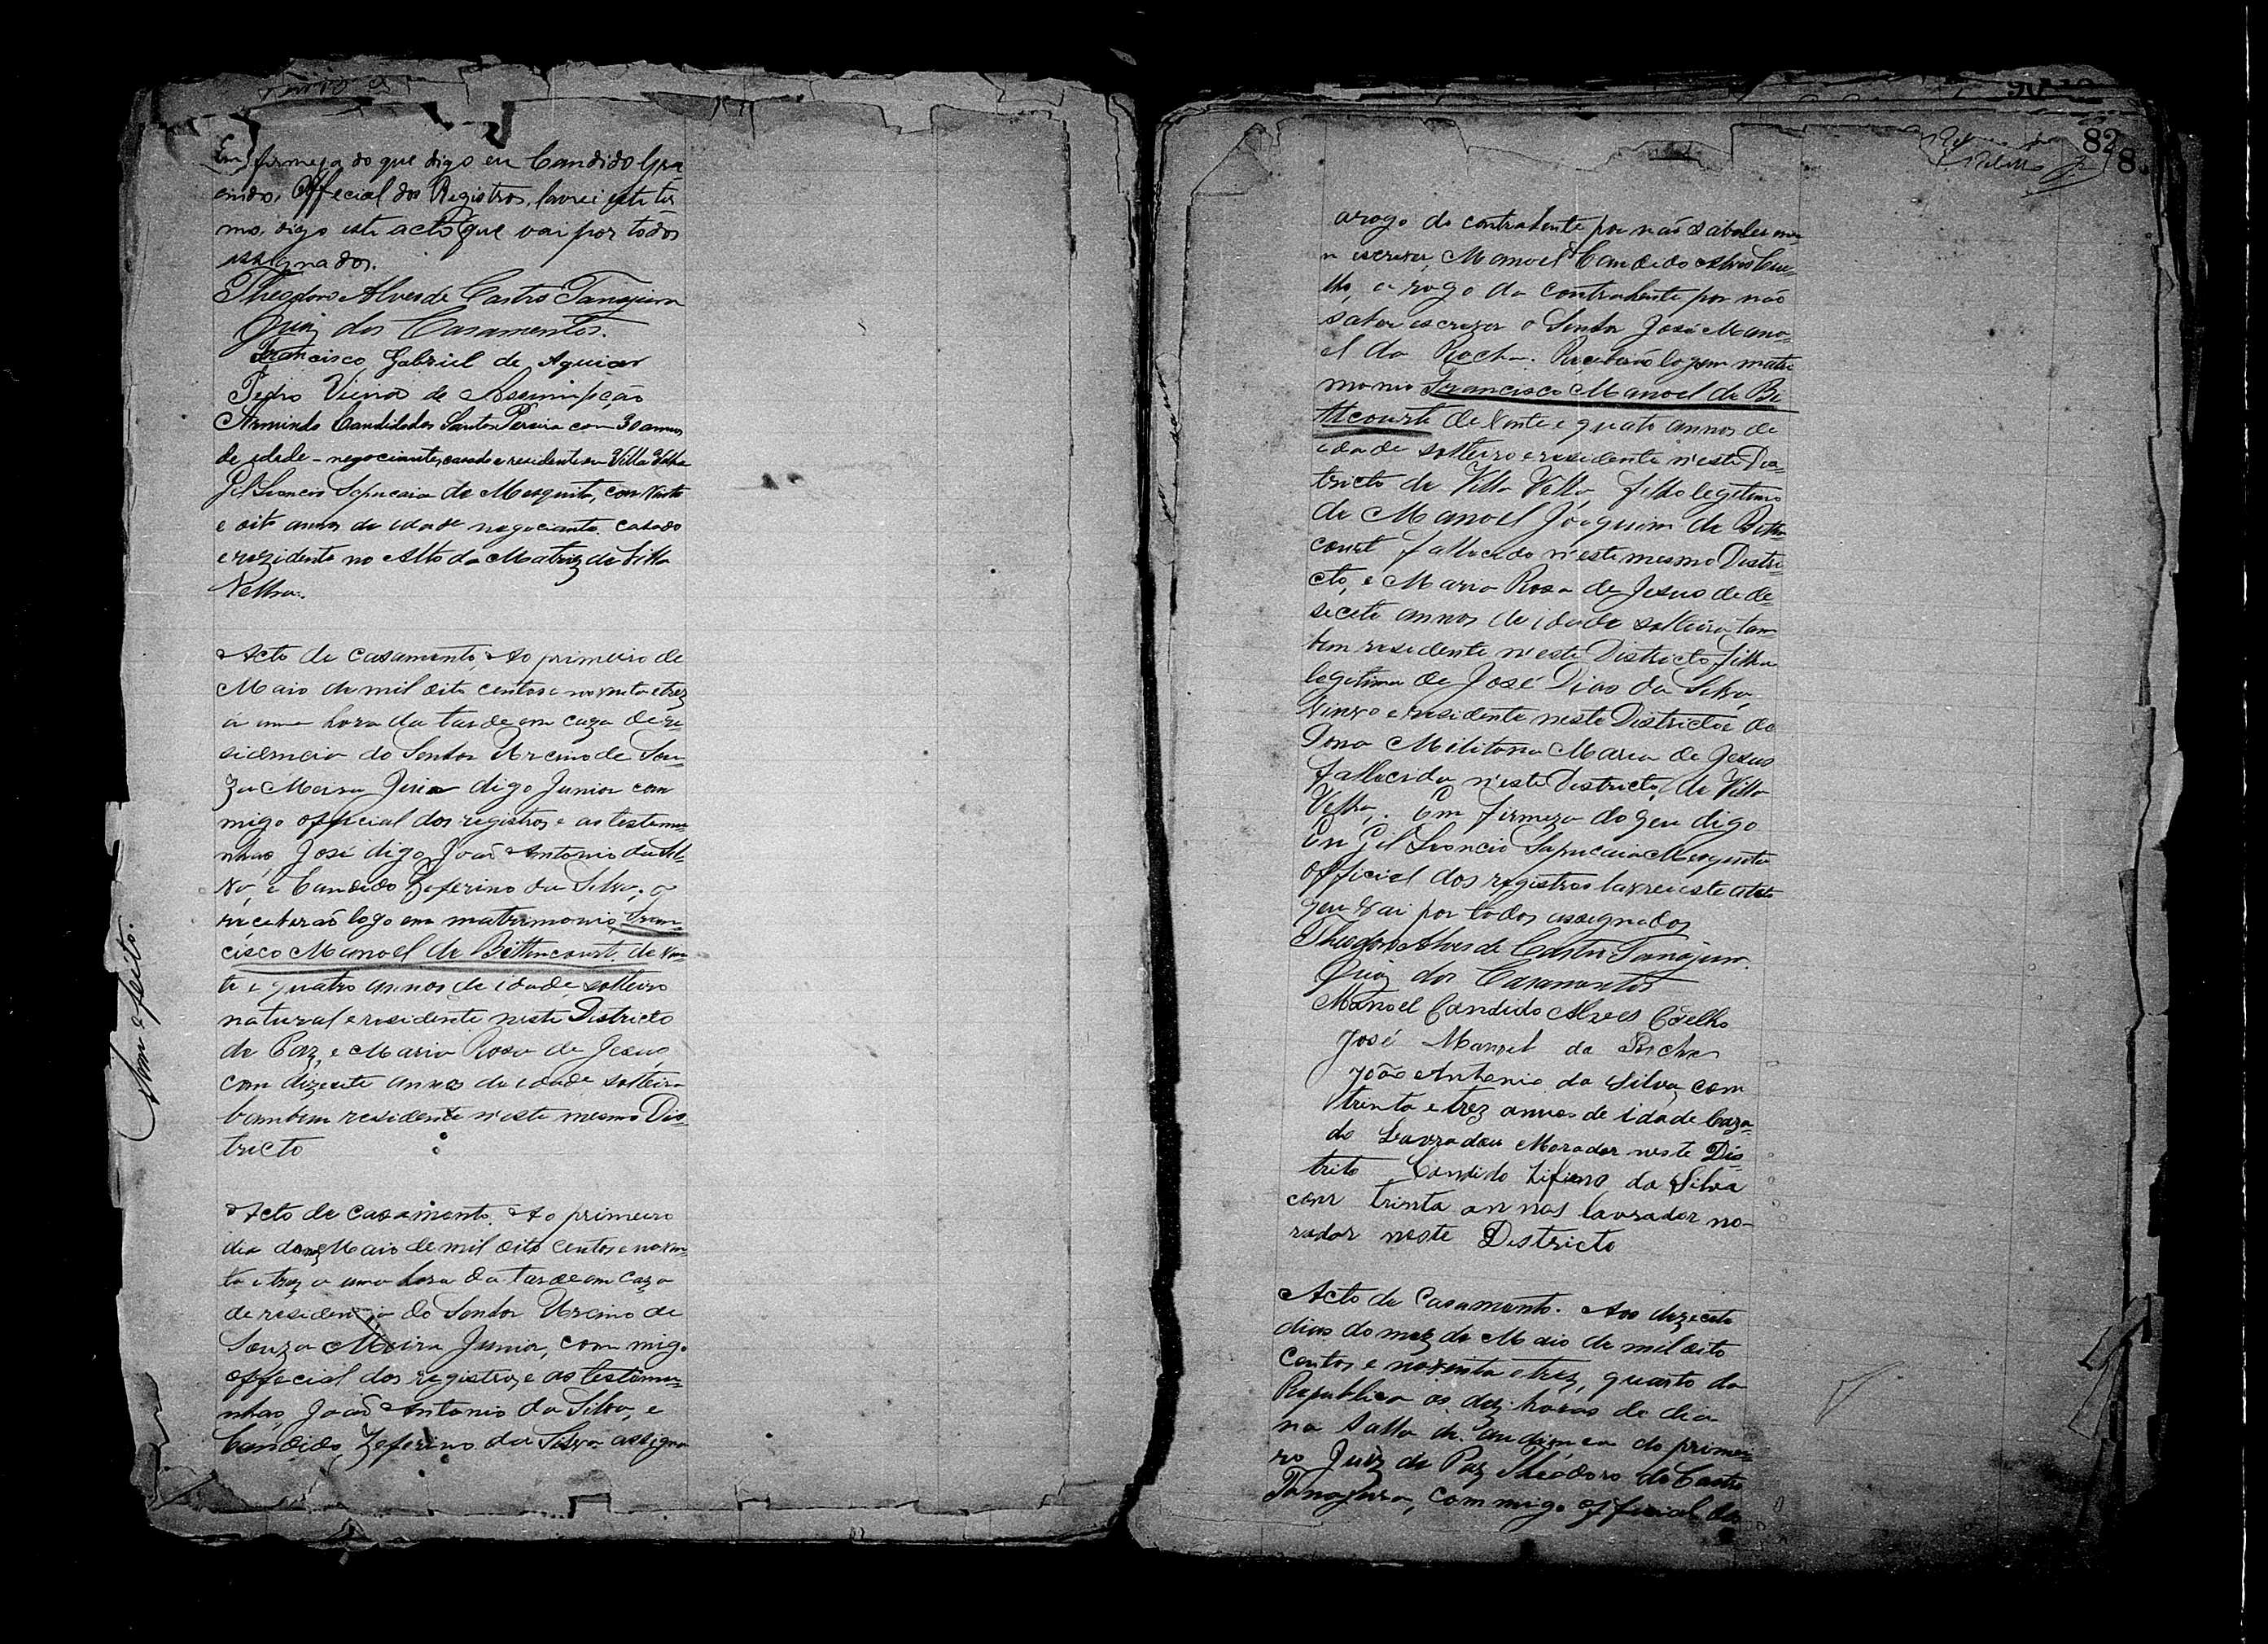 Em firmeza do que digo eu Candido Gra
cindo, Official dos Registros, lavrei este ter
mo, digo este acto que vai por todos
assignados.
Theodoro Alves de Castro Tanajura
Juiz dos Casamentos.
Francisco Gabriel de Aguiar
Pedro Vieira de Assumpção
Armindo Candido dos Santos Pereira com 30 annos
de idade - negociante, casado e residente em Villa Velha
Gil Leoncio Sapucaia de Mesquita, com vinte
e oito annos de idade negociante casado
e rezidente no Alto da Matriz da Villa
Velha.
Acto de Casamento, Ao primeiro de
Maio de mil oito centos e noventa e trez
a uma hora da tarde em caza de re
sidencia do Senhor Urcino de Sou
za Meira digo Junior com
migo official dos registros e as testemu
nhas José digo João Antonio da Sil
va, e Candido Zeferino da Silva,
receberaõ logo em matrimonio, Fran
cisco Manoel de Bittencourt, de vin
te e quatro annos de idade solteiro
natural e residente neste Districto
de Paz, e Maria Rosa de Jesus
com dizesete annos de idade solteira
tambem residente n'este mesmo Dis
tricto
Sem efeito.
Acto de Casamento. Ao primeiro
dia do mez Maio de mil oito centos e noven
ta e trez a uma hora da tarde em caza
de residencia do Senhor Urcino de
Souza Meira Junior, com migo
official dos registros, e as testemu
nhas, João Antonio da Silva, e
Candido Zeferino da Silva assigna
82
arogo do contrahente por não saber
escrever, Manoel Candido Alves Coe
lho, a rogo da contrahente por não
saber escrever o Senhor José Mano
el da Rocha. Receberaõ logo em matri
monio Francisco Manoel de Bi
ttcourte de vinte e quatro annos de
idade solteiro e residente n'este Dis
tricto de Villa Velha, filho legitimo
de Manoel Joaquim de Bitten
court fallecido n'este mesmo Distri
cto, e Maria Rosa de Jesus de de
secete annos de idade solteira tam
bem residente n'este Districto filha
legitima de José Dias da Silva,
viuvo e residente neste Districto e de
Dona Militana Maria de Jesus
fallecida n'este Districto, de Villa
Velha,. Em firmeza do qeu digo
Eu Gil Leoncio Sapucaia Mesquita
official dos registros lavrei este
qeu vai por todos assignados
Theodoro Alves de Castro Tanajura.
Juiz dos Casamentos
Manoel Candido Alves Coelho
José Manoel da Rocha
João Antonio da Silva com
trinta e trez annos de idade Caza
do Lavradou Morador neste Dis
trito Candido Zifirino da Silva
com trinta annos lavrador mo
rador neste Districto
Acto de Casamento. Aos dezecete
dias do mez de Maio de mil oito
centos e noventa e trez, quarto da
Republica as dez horas do dia
na Salla de audiencia do primei
ro Juiz de Paz Theodoro de Castro
Tanajura, com migo official do